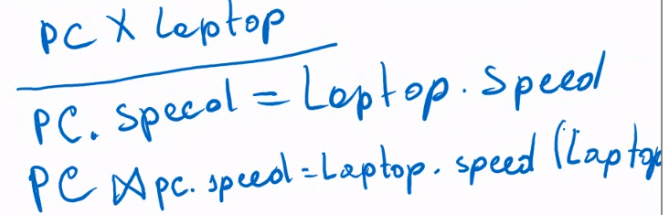 PC X Laptop
PC. speed = Laptop. Speed
PC ⋈ pc. speed = Laptop. speed (Laptop